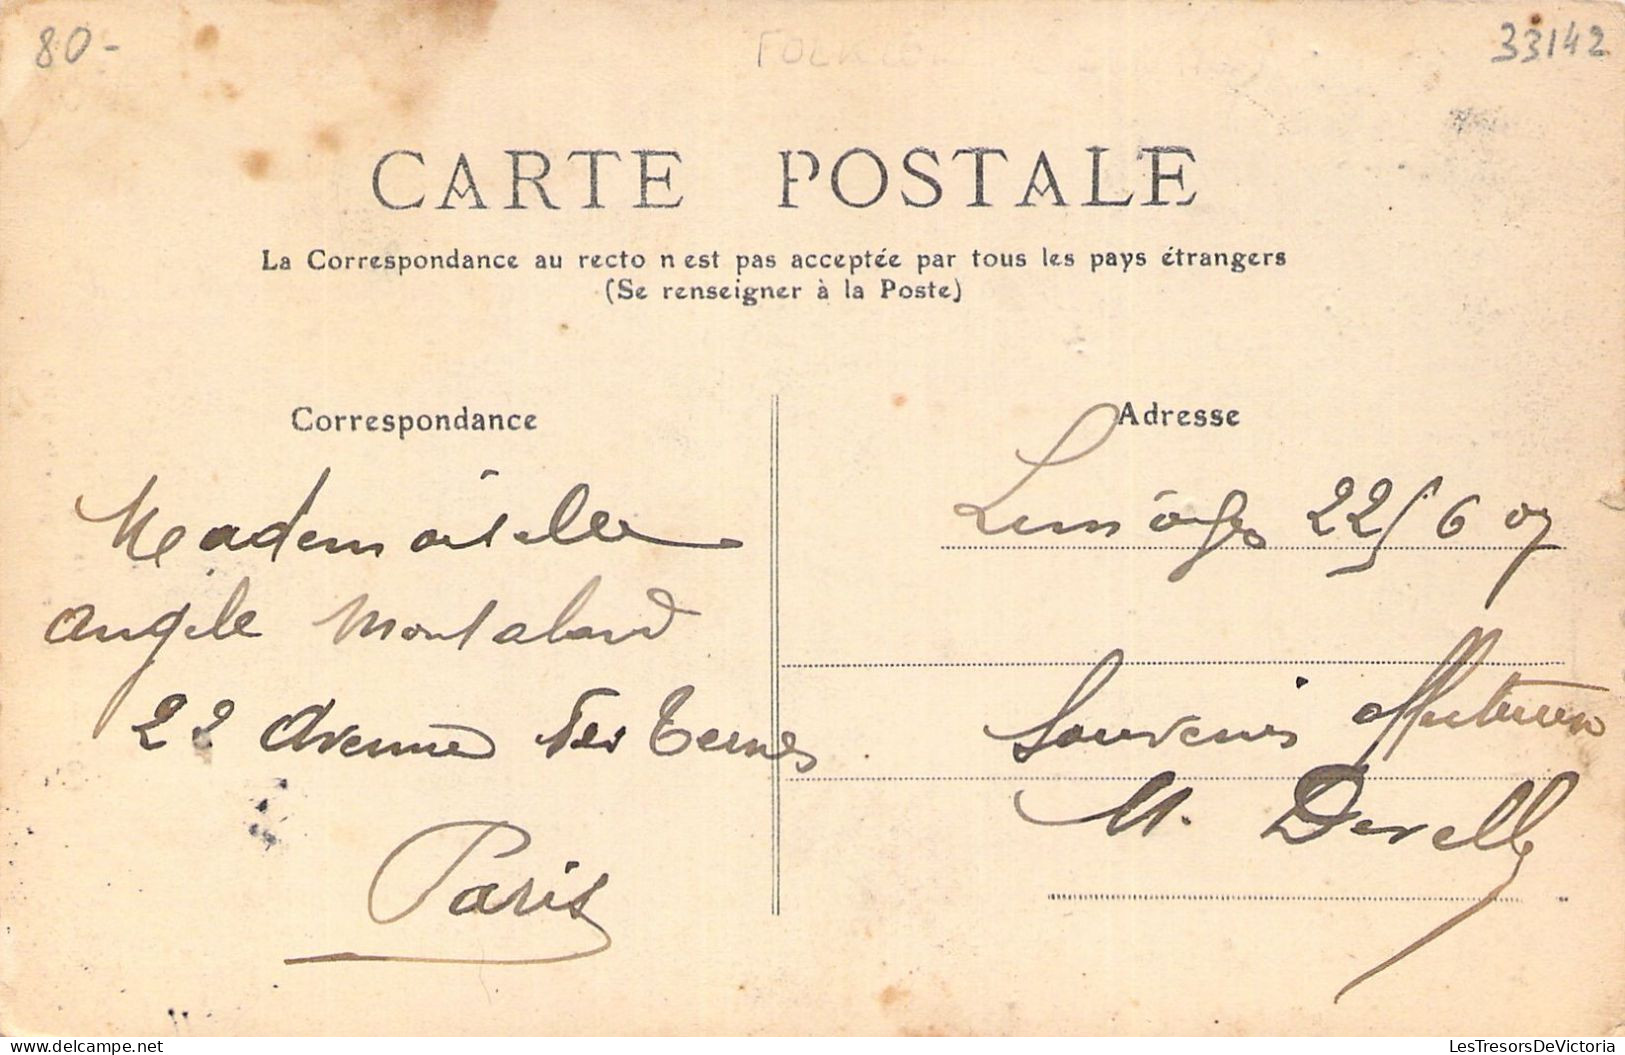 80-
33142
CARTE POSTALE
La Correspondance au recto n'est pas acceptée par tous les pays étrangers
(Se renseigner à la Poste)
Correspondance
Adresse
Mademoiselle
Angèle Montalard
22 Avenue des Ternes
Paris
Limoges 22/6 07
Souvenirs affectueux
M. Derelly
LesTresorsDeVictoria